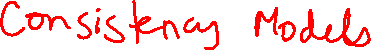 Consistency Models